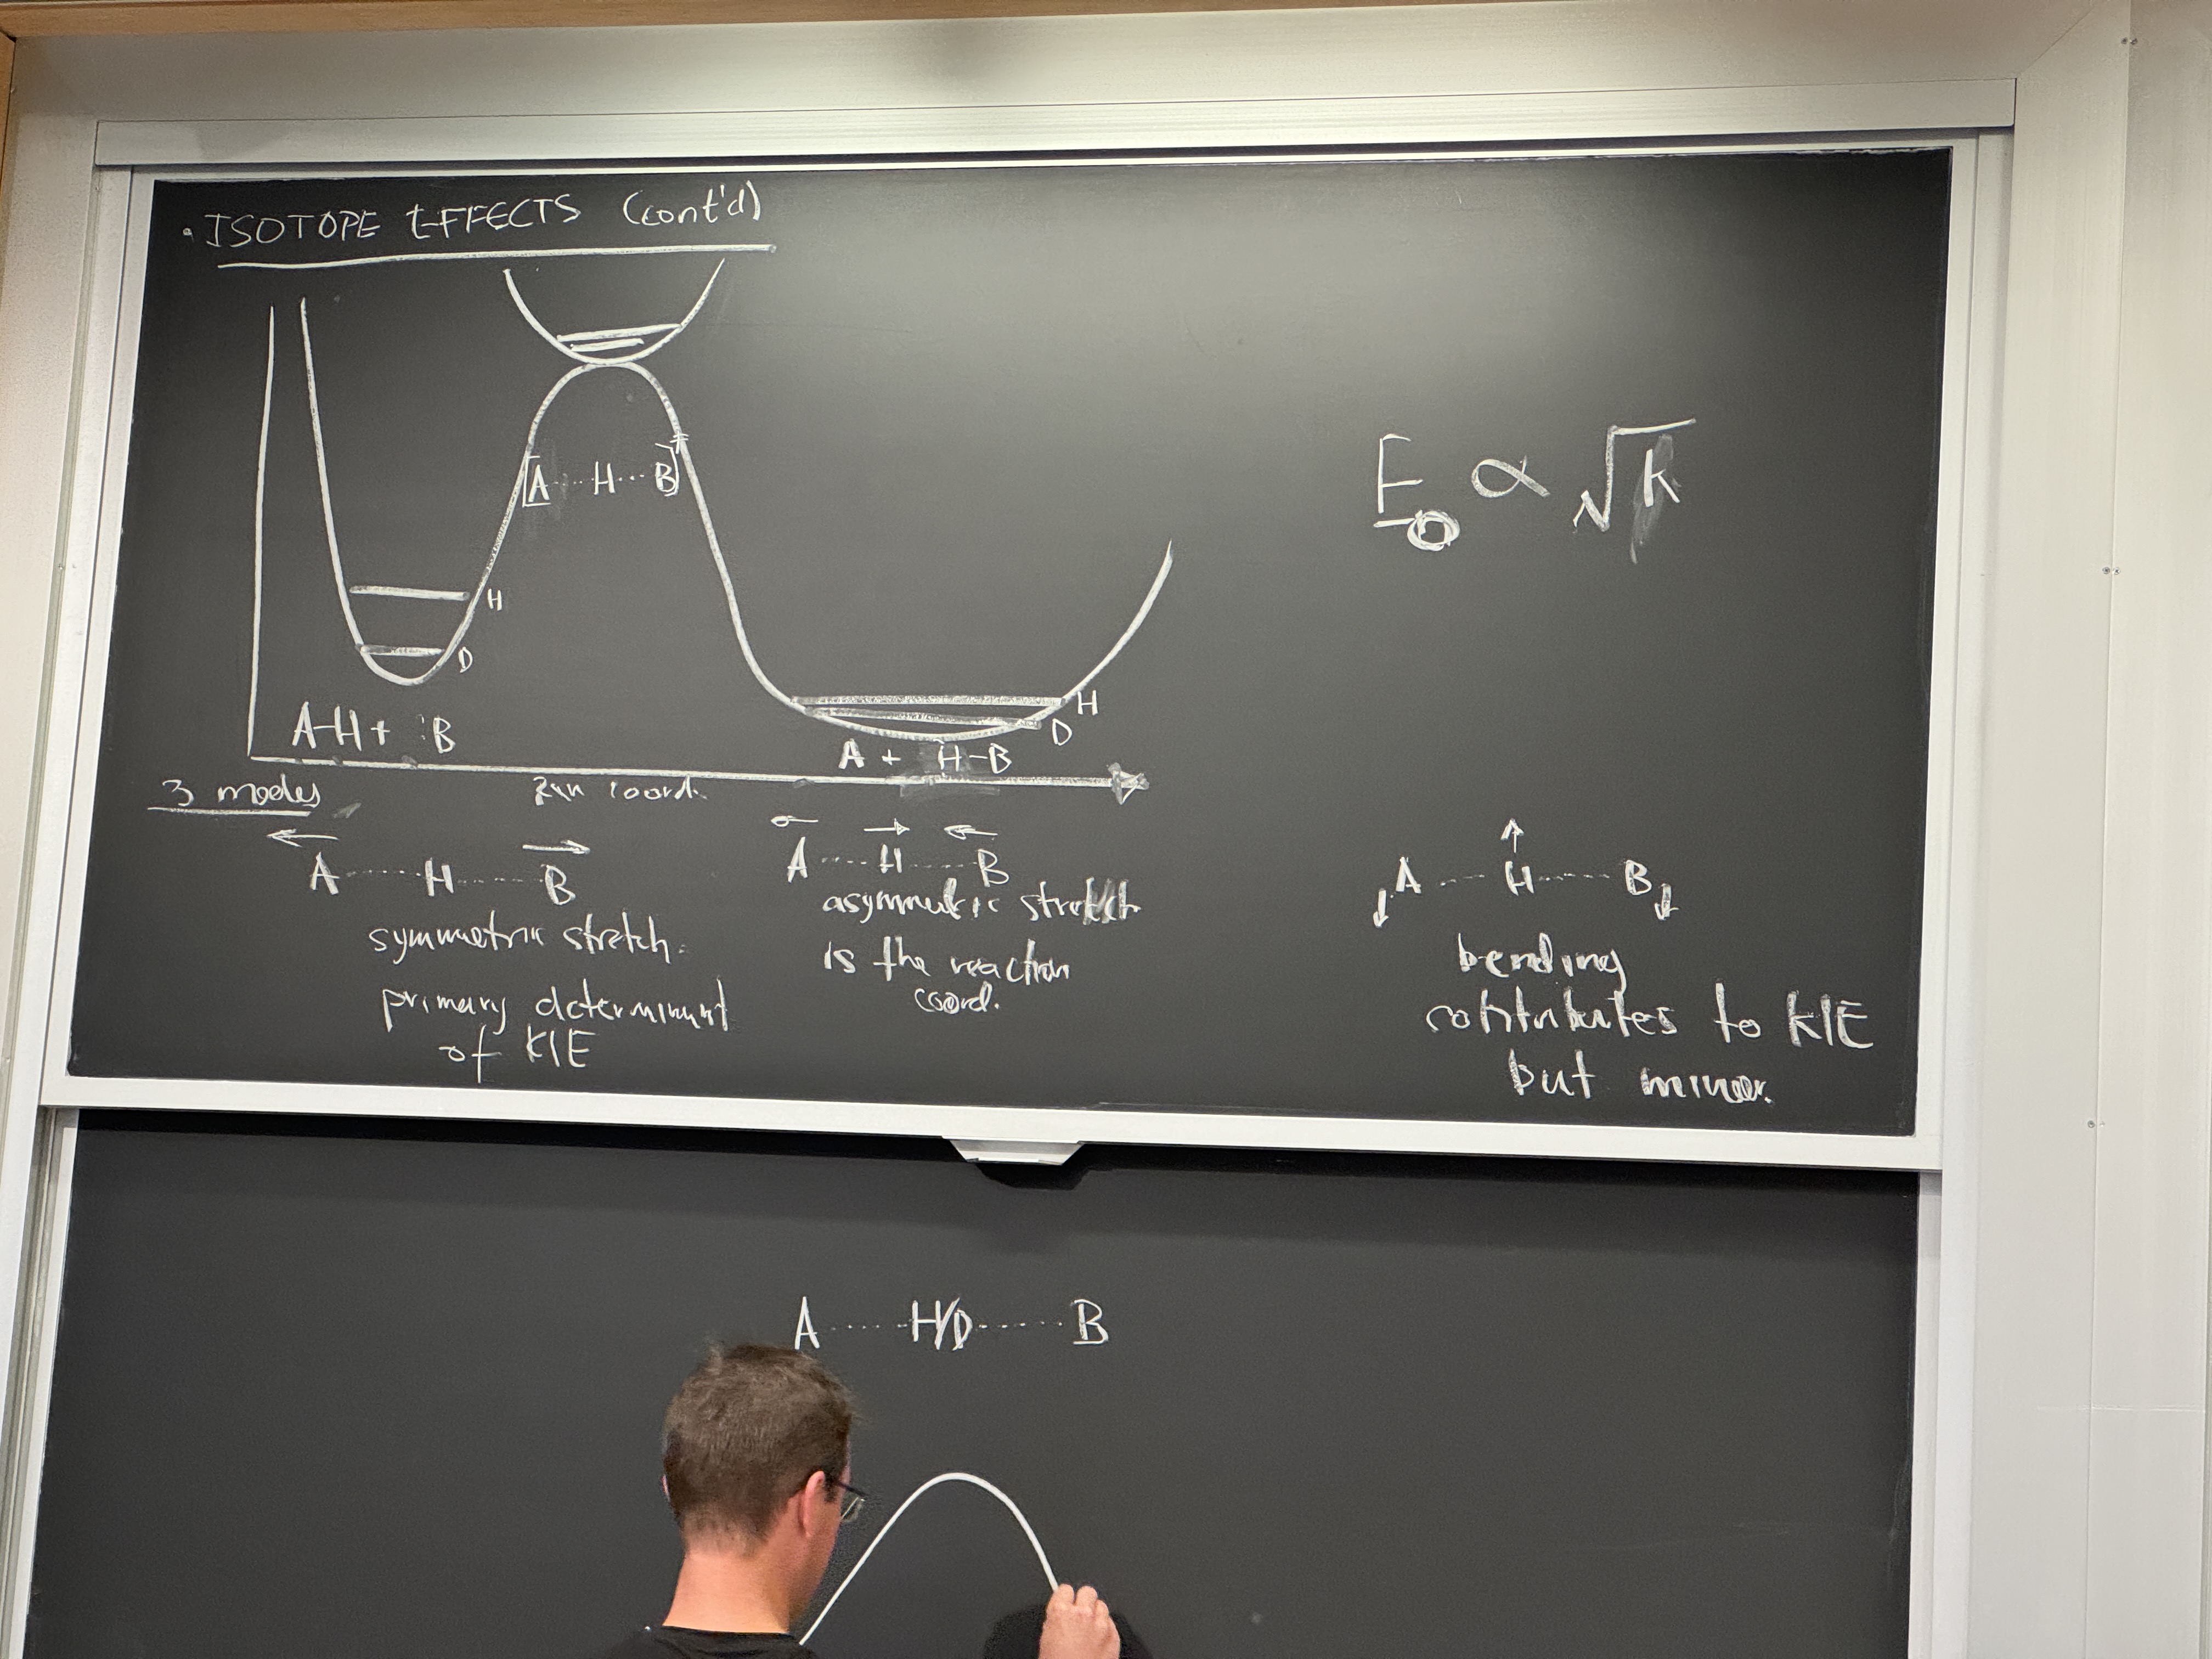 • ISOTOPE EFFECTS (cont'd)
[A ···· H ···· B]‡
E₀ ∝ √k
H
D
H
D
A-H + :B
A + H-B
3 modes
Rxn coord.
A ···· H ···· B
symmetric stretch.
primary determinant
of KIE
A ···· H ···· B
asymmetric stretch
is the reaction
coord.
A ···· H ···· B
bending
contributes to KIE
but minor.
A ···· H/D ···· B